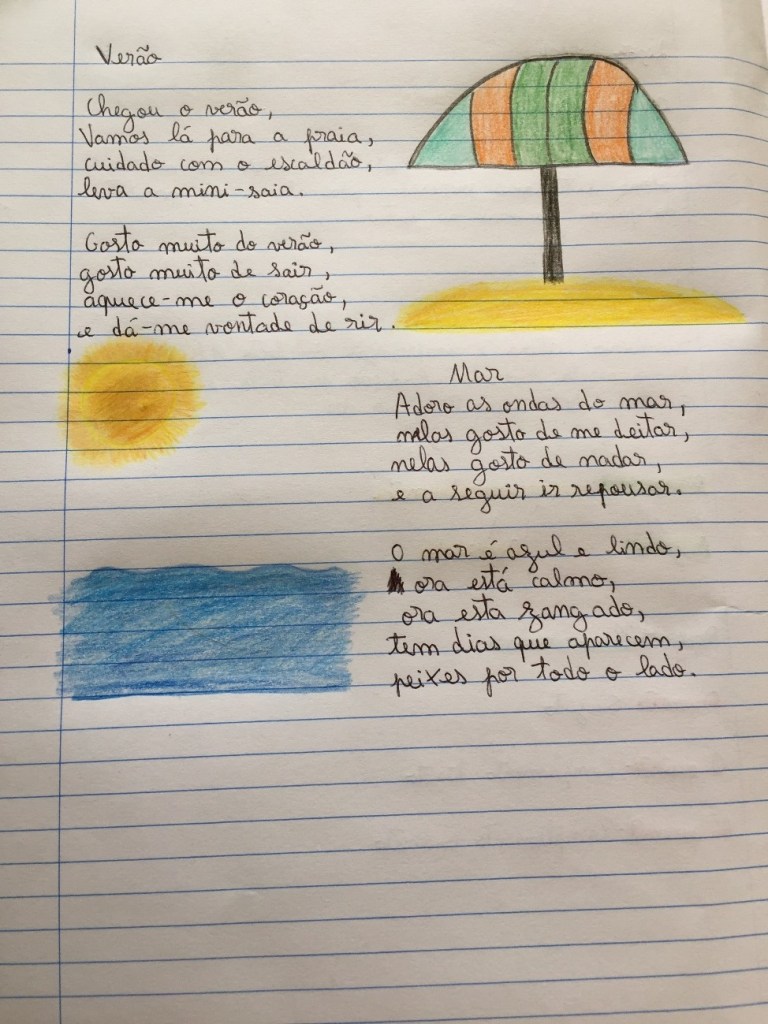 Verão
Chegou o verão,
Vamos lá para a praia,
cuidado com o escaldão,
leva a mini-saia.
Gosto muito do verão,
gosto muito de sair,
aquece-me o coração,
e dá-me vontade de rir.
Mar
Adoro as ondas do mar,
nelas gosto de me deitar,
nelas gosto de nadar,
e a seguir ir repousar.
O mar é azul e lindo,
ora está calmo,
ora esta zangado,
tem dias que aparecem,
peixes por todo o lado.